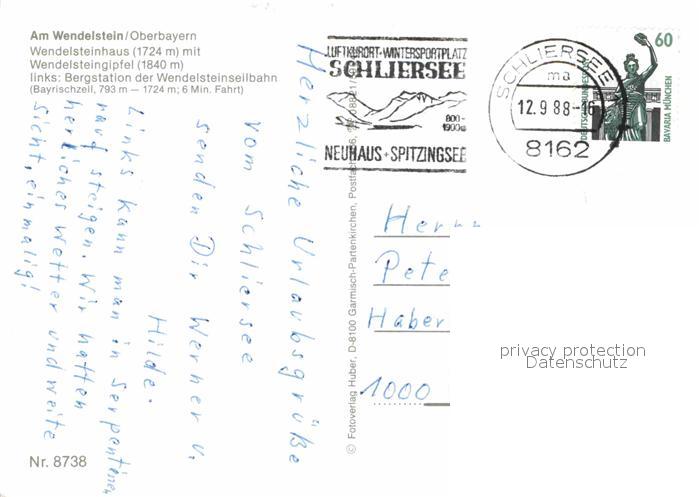 Am Wendelstein/Oberbayern
Wendelsteinhaus (1724 m) mit
Wendelsteingipfel (1840 m)
links: Bergstation der Wendelsteinseilbahn
(Bayrischzell, 793 m — 1724 m; 6 Min. Fahrt)
Herzliche Urlaubsgrüße
vom Schliersee
senden Dir Werner u.
Hilde.
Links kann man in Serpentinen
rauf steigen. Wir hatten
herrliches Wetter und weite
Sicht, einmalig!
Nr. 8738
© Fotoverlag Huber, D-8100 Garmisch-Partenkirchen, Postfach
LUFTKURORT-WINTERSPORTPLATZ
SCHLIERSEE
800-
1900m
NEUHAUS+SPITZINGSEE
SCHLIERSEE 1
ma
12.9 88-16
8162
60
DEUTSCHE BUNDESPOST
BAVARIA MÜNCHEN
Herrn
Pete
Haber
1000
privacy protection
Datenschutz